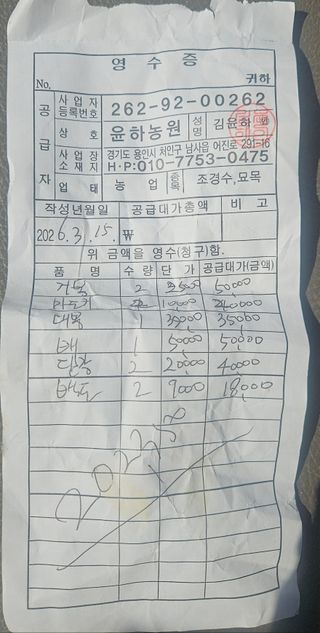 영 수 증
No. 귀하
공 급 자
사 업 자 등록번호 262-92-00262
상 호 윤하농원 성명 김윤하 인
사 업 장 소 재 지 경기도 용인시 처인구 남사읍 어진로 291-16
H·P:010-7753-0475
업 태 농 업 종목 조경수,묘목
작성년월일 공급대가총액 비 고
2026. 3. 15. ₩
위 금액을 영수(청구)함.
품 명 수 량 단 가 공급대가(금액)
거봉 2 50,000
10,000
대목 1 35,000 35,000
배 1 50,000 50,000
2 20,000 40,000
2 9,000 18,000